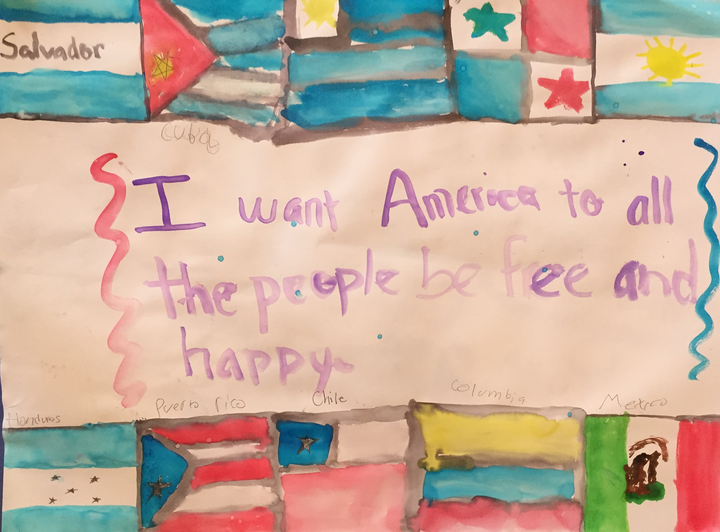 Salvador
Cuba
I want America to all
the people be free and
happy
Honduras
Puerto rico
Chile
Columbia
Mexico